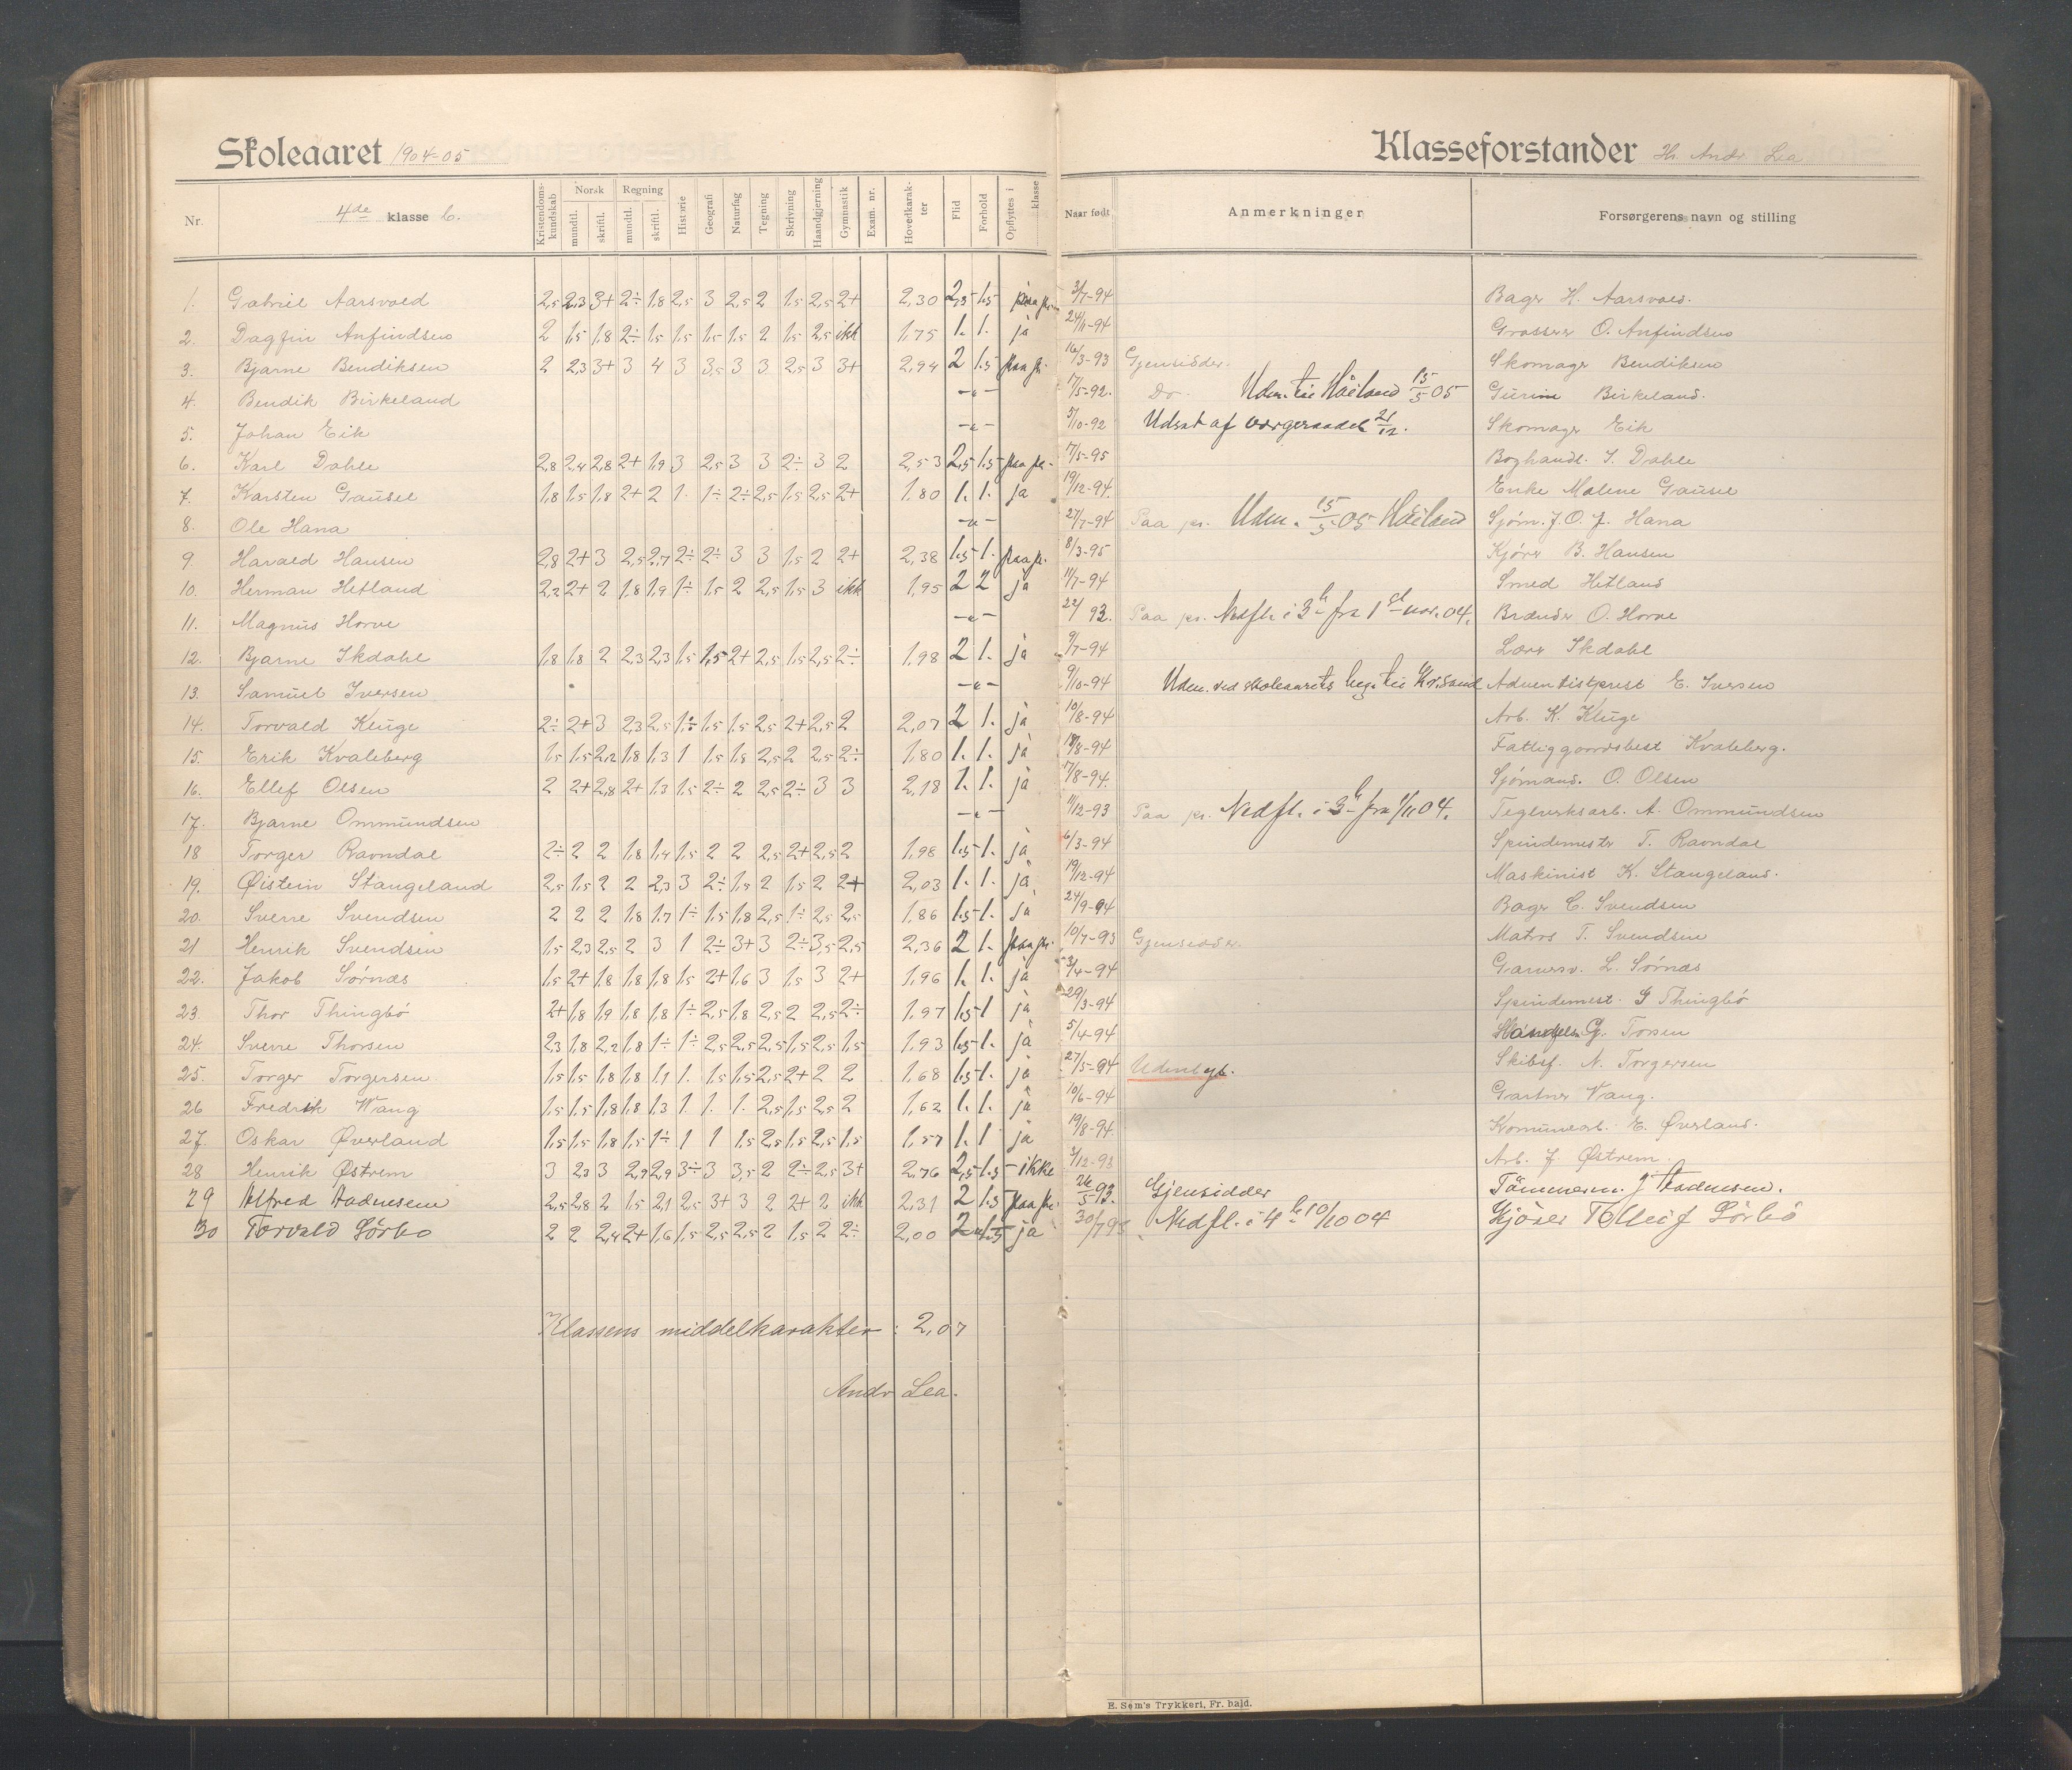 Skoleaaret 1904-05
Klasseforstander Hr. Andr Lea
Nr. 4de klasse
Kristendoms-kundskab Norsk mundtl. skriftl. Regning mundtl. skriftl. Historie Geografi Naturfag Tegning Skrivning Haandgjerning Gymnastik Exam. nr. Hovedkarak-ter Flid Forhold Opflyttes i klasse Naar født Anmerkninger Forsørgerens navn og stilling
1. Gabriel Aarsvold 2,5 2,3 3+ 2÷ 1,8 2,5 3 2,5 2 1,5 2,5 2+ 2,30 2,5 1,5 3/7-94 Bager H. Aarsvold.
2. Dagfin Anfindsen 2 1,5 1,8 2÷ 1,5 1,5 1,5 1,5 2 1,5 2,5 ikk 1,75 1. 1. ja 24/11-94 Grosserer O. Anfindsen
3. Bjarne Bendiksen 2 2,3 3+ 3 4 3 3,5 3 3 2,5 3 3+ 2,94 2 1,5 paa pr. 16/3-93 Gjensidder. Skomager Bendiksen
4. Bendik Birkeland -"- 17/5-92. Do. Udm. til Håiland 15/5 05 Birkeland.
5. Johan Eik -"- 5/10-92 Udsat af vergeraadet 21/12. Skomager Eik
6. Karl Dahle 2,8 2,4 2,8 2+ 1,9 3 2,5 3 3 2÷ 3 2 2,53 2,5 1,5 paa pr. 17/5-95 Boghandl. S. Dahle
7. Karsten Gausel 1,8 1,5 1,8 2+ 2 1. 1÷ 2÷ 2,5 1,5 2,5 2+ 1,80 1. 1. ja 19/12-94. Enke Malene Gausel
8. Ole Hana -"- 27/7-94 Paa pr. Udm. 15/5 05 Håiland Sjøm. J. O. J. Hana
9 Harald Hansen 2,8 2+ 3 2,5 2,7 2÷ 2÷ 3 3 1,5 2 2+ 2,38 1,5 1. paa pr. 8/3-95 Kjører B. Hansen
10. Herman Hetland 2,2 2+ 2 1,8 1,9 1÷ 1,5 2 2,5 1,5 3 ikk 1,95 2 2 ja 11/7-94 Smed Hetland
11. Magnus Horve -"- 22/ 93. Paa pr. Nedfl. i 3die fra 1st nov. 04. O. Horve
12. Bjarne Skdahl 1,8 1,8 2 2,3 2,3 1,5 1,5 2+ 2,5 1,5 2,5 2÷ 1,98 2 1. ja 9/7-94 Lærer Skdahl
13. Samuel Iversen -"- 9/10-94 Udm. ved skoleaarets beg. til Kr.sand Adventistprest E. Iversen
14. Torvald Kluge 2÷ 2+ 3 2,3 2,5 1÷ 1,5 1,5 2,5 2+ 2,5 2 2,07 2 1. ja 10/8-94 Arb. K. Kluge
15. Erik Kvaleberg 1,5 1,5 2,2 1,8 1,3 1 1,5 1,8 2,5 2 2,5 2÷ 1,80 1. 1. ja 18/8-94 Fattiggaardsbest Kvaleberg.
16. Ellef Olsen 2 2+ 2,8 2+ 1,3 1,5 2÷ 2 2,5 2÷ 3 3 2,18 1. 1. ja 17/8-94. Sjømand. O. Olsen
17. Bjarne Ommundsen -"- 11/12-93 Paa pr. Nedfl. i 3die fra 1/11 04. Teglverksarb. A. Ommundsen
18 Torger Ravndal 2÷ 2 2 1,8 1,4 1,5 2 2 2,5 2+ 2,5 2 1,98 1,5 1. ja 6/3-94 Spindemester T. Ravndal
19. Øistein Stangeland 2,5 1,5 2 2 2,3 3 2÷ 1,5 2 1,5 2 2+ 2,03 1. 1. ja 19/12-94 Maskinist K. Stangeland.
20. Sverre Svendsen 2 2 2 1,8 1,7 1÷ 1,5 1,8 2,5 1÷ 2,5 2,5 1,86 1,5 1. ja 24/9-94 Bager C. Svendsen
21 Henrik Svendsen 1,5 2,3 2,5 2 3 1 2÷ 3+ 3 2÷ 3,5 2,5 2,36 2 1. paa pr. 10/7-93 Gjensidder. Matros T. Svendsen
22. Jakob Sørnæs 1,5 2+ 1,8 1,8 1,8 1,5 2+ 1,6 3 1,5 3 2+ 1,96 1. 1. ja 3/4-94 L. Sørnæs
23. Thor Thingbø 2+ 1,8 1,9 1,8 1,8 1÷ 2,5 1,8 2,5 2 2,5 2÷ 1,97 1,5 1 ja 29/3-94 Spindemest. G Thingbø
24. Sverre Thorsen 2,3 1,8 2,2 1,8 1÷ 1÷ 2,5 2,5 2,5 1,5 2,5 1,5 1,93 1,5 1. ja 5/4-94 G. Torsen
25. Torger Torgersen 1,5 1,5 1,8 1,8 1,1 1. 1,5 1,5 2,5 2+ 2 2 1,68 1,5 1. ja 27/5-94 Udenbys. Skibsf. N. Torgersen
26 Fredrik Wang 1,5 1,5 1,8 1,8 1,3 1. 1. 1. 2,5 1,5 2,5 2 1,62 1. 1. ja 10/6-94 Gartner Vang.
27. Oskar Øverland 1,5 1,5 1,8 1,5 1÷ 1 1 1,5 2,5 1,5 2,5 1,5 1,57 1. 1 ja 19/8-94. Komunearb. E. Øverland.
28 Henrik Østrem 3 2,3 3 2,9 2,9 3÷ 3 3,5 2 2÷ 2,5 3+ 2,76 2,5 1,5 - ikke 3/12-93 Arb. J. Østrem.
29 Alfred Aadnesen 2,5 2,8 2 1,5 2,1 2,5 3+ 3 2 2+ 2 ikk 2,31 2 1,5 paa pr. 26/5 93. Gjensidder Tömmerm. J. Aadnesen.
30 Torvald Sörbo 2 2 2,4 2+ 1,6 1,5 2,5 2,5 2 1,5 2 2÷ 2,00 2 1,5 ja 30/7 93 Nedfl. i 4de 10/10 04 Kjörer Tolleif Sörbö
Klassens middelkarakter: 2,07
Andr Lea.
E. Sem's Trykkeri, Fr. hald.